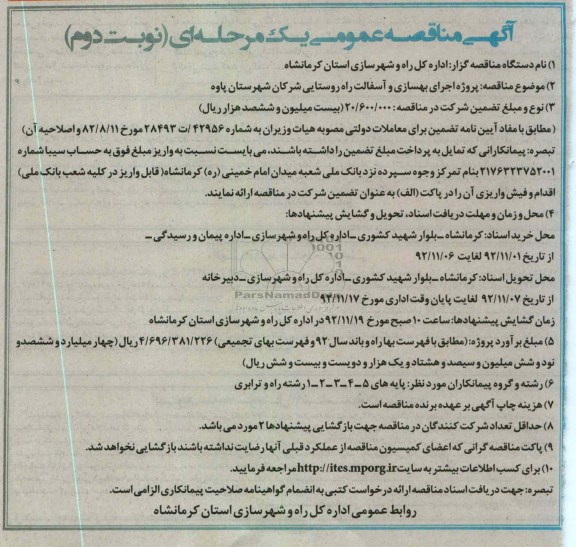 آگهی مناقصه عمومی یک مرحله‌ای (نوبت دوم)
۱) نام دستگاه مناقصه گزار: اداره کل راه و شهرسازی استان کرمانشاه
۲) موضوع مناقصه: پروژه اجرای بهسازی و آسفالت راه روستایی شرکان شهرستان پاوه
۳) نوع و مبلغ تضمین شرکت در مناقصه: ۲۰/۶۰۰/۰۰۰ (بیست میلیون و ششصد هزار ریال)
(مطابق با مفاد آیین نامه تضمین برای معاملات دولتی مصوبه هیات وزیران به شماره ۴۲۹۵۶ /ت ۲۸۴۹۳ مورخ ۸۲/۸/۱۱ و اصلاحیه آن)
تبصره: پیمانکارانی که تمایل به پرداخت مبلغ تضمین را داشته باشند، می بایست نسبت به واریز مبلغ فوق به حساب سیبا شماره
۲۱۷۶۳۲۳۷۵۲۰۰۱ بنام تمرکز وجوه سپرده نزد بانک ملی شعبه میدان امام خمینی (ره) کرمانشاه( قابل واریز در کلیه شعب بانک ملی)
اقدام و فیش واریزی آن را در پاکت (الف) به عنوان تضمین شرکت در مناقصه ارائه نمایند.
۴) محل و زمان و مهلت دریافت اسناد، تحویل و گشایش پیشنهادها:
محل خرید اسناد: کرمانشاه ـ بلوار شهید کشوری ـ اداره کل راه و شهرسازی ـ اداره پیمان و رسیدگی ـ
از تاریخ ۹۲/۱۱/۰۱ لغایت ۹۲/۱۱/۰۶
محل تحویل اسناد: کرمانشاه ـ بلوار شهید کشوری ـ اداره کل راه و شهرسازی ـ دبیرخانه
از تاریخ ۹۲/۱۱/۰۷ لغایت پایان وقت اداری مورخ ۹۲/۱۱/۱۷
زمان گشایش پیشنهادها: ساعت ۱۰ صبح مورخ ۹۲/۱۱/۱۹ در اداره کل راه و شهرسازی استان کرمانشاه
۵) مبلغ برآورد پروژه: (مطابق با فهرست بها راه و باند سال ۹۲ و فهرست بهای تجمیعی) ۴/۶۹۶/۳۸۱/۲۲۶ ریال (چهار میلیارد و ششصد و
نود و شش میلیون و سیصد و هشتاد و یک هزار و دویست و بیست و شش ریال)
۶) رشته و گروه پیمانکاران مورد نظر: پایه های ۵ـ۴ـ۳ـ۲ـ۱ رشته راه و ترابری
۷) هزینه چاپ آگهی بر عهده برنده مناقصه است.
۸) حداقل تعداد شرکت کنندگان در مناقصه جهت بازگشایی پیشنهادها ۲ مورد می باشد.
۹) پاکت مناقصه گرانی که اعضای کمیسیون مناقصه از عملکرد قبلی آنها رضایت نداشته باشند بازگشایی نخواهد شد.
۱۰) برای کسب اطلاعات بیشتر به سایت http://ites.mporg.ir مراجعه فرمایید.
تبصره: جهت دریافت اسناد مناقصه ارائه درخواست کتبی به انضمام گواهینامه صلاحیت پیمانکاری الزامی است.
روابط عمومی اداره کل راه و شهرسازی استان کرمانشاه